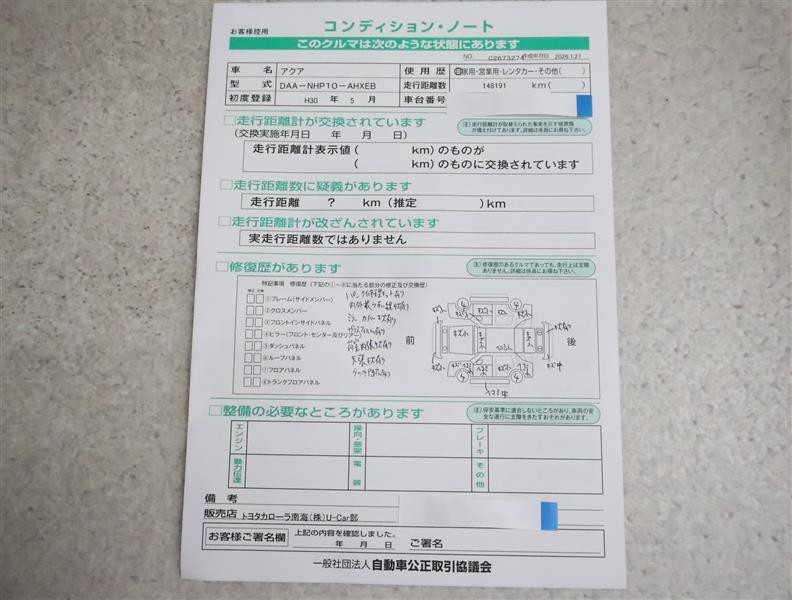 お客様控用
コンディション・ノート
このクルマは次のような状態にあります
NO. C2673274 作成年月日 2026.1.27
車名 アクア 使用歴 自家用・営業用・レンタカー・その他( )
型式 DAA-NHP10-AHXEB 走行距離数 148191 km( )
初度登録 H30 年 5 月 車台番号
□走行距離計が交換されています
(交換実施年月日 年 月 日)
注)走行距離計が取替えられた事実を示す帳票類が備え付けてあります。詳細は係員にお尋ね下さい。
走行距離計表示値( km)のものが
( km)のものに交換されています
□走行距離数に疑義があります
走行距離 ? km(推定 )km
□走行距離計が改ざんされています
実走行距離数ではありません
□修復歴があります
注)修復歴のあるクルマであっても、走行上は支障ありません。詳細は係員にお尋ね下さい。
特記事項 修復歴(下記の①~⑧に当たる部分の修正及び交換歴)
修正 交換
①フレーム(サイドメンバー)
②クロスメンバー
③フロントインサイドパネル
④ピラー(フロント・センター及びリアー)
⑤ダッシュパネル
⑥ルーフパネル
⑦フロアパネル
⑧トランクフロアパネル
パンク修理キット有り
ミラーカバーキズ有り
天張キズ有り
前
後
□整備の必要なところがあります
注)保安基準に適合しないところがあり、車両の安全な運行に支障をきたすおそれがあります。
エンジン 操向・懸架 ブレーキ
動力伝達 電装 その他
備考
販売店 トヨタカローラ南海(株)U-Car部
お客様ご署名欄 上記の内容を確認しました。
年 月 日 ご署名
一般社団法人 自動車公正取引協議会